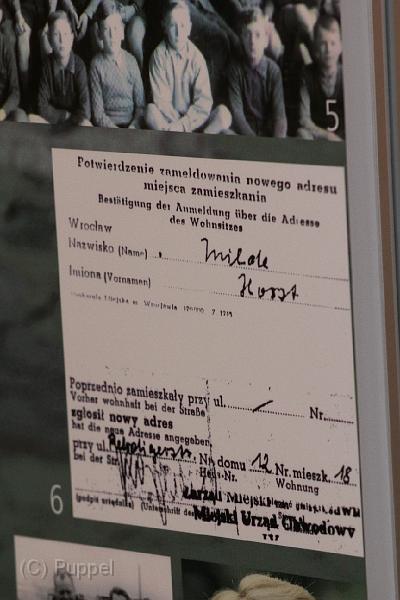 5
Potwierdzenie zameldowania nowego adresu
miejsca zamieszkania
Bestätigung der Anmeldung über die Adresse
des Wohnsitzes
Wrocław
Nazwisko (Name) Milde
Imiona (Vornamen) Horst
Poprzednio zamieszkały przy ul. Nr.
Vorher wohnhaft bei der Straße
zgłosił nowy adres
hat die neue Adresse angegeben
przy ul. Nr domu 12 Nr. mieszk. 18
bei der Str. Haus-Nr. Wohnung
6
Zarząd Miejski
(podpis urzędnika) (Unterschrift des Miejski Urząd
(C) Puppel